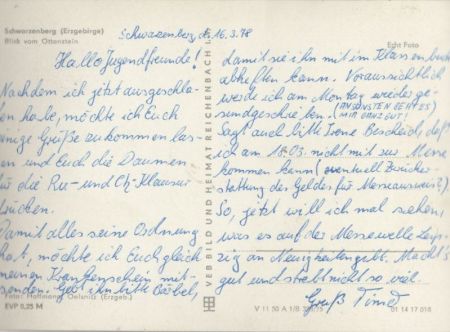 Schwarzenberg (Erzgebirge)
Blick vom Ottenstein
Schwarzenberg, d. 16.3.78
Hallo Jugendfreunde!
Nachdem ich jetzt ausgeschla-
fen habe, möchte ich Euch
einige Grüße zukommen las-
sen und Euch die Daumen
für die Ru- und Ch-Klausur
drücken.
Damit alles seine Ordnung
hat, möchte ich Euch gleich
meinen Krankenschein mit-
senden. Gebt ihn bitte Bärbel,
Foto: Hoffmann, Oelsnitz (Erzgeb.)
EVP 0,25 M
VEB BILD UND HEIMAT REICHENBACH i. V.
Echt Foto
damit sie ihn mit im Klassenbuch
abheften kann. Voraussichtlich
werde ich am Montag wieder ge-
sundgeschrieben. (ANSONSTEN GEHT ES
MIR GANZ GUT!)
Sagt auch bitte Irene Bescheid, daß
ich am 18.03. nicht mit zur Messe
kommen kann (eventuell Zurücker-
stattung des Geldes für Messeausweis?)
So, jetzt will ich mal sehen,
was es auf der Messewelle Leip-
zig an Neuigkeiten gibt. Macht's
gut und strebt nicht so viel.
Gruß
V 11 50 A 1/B
01 14 17 018